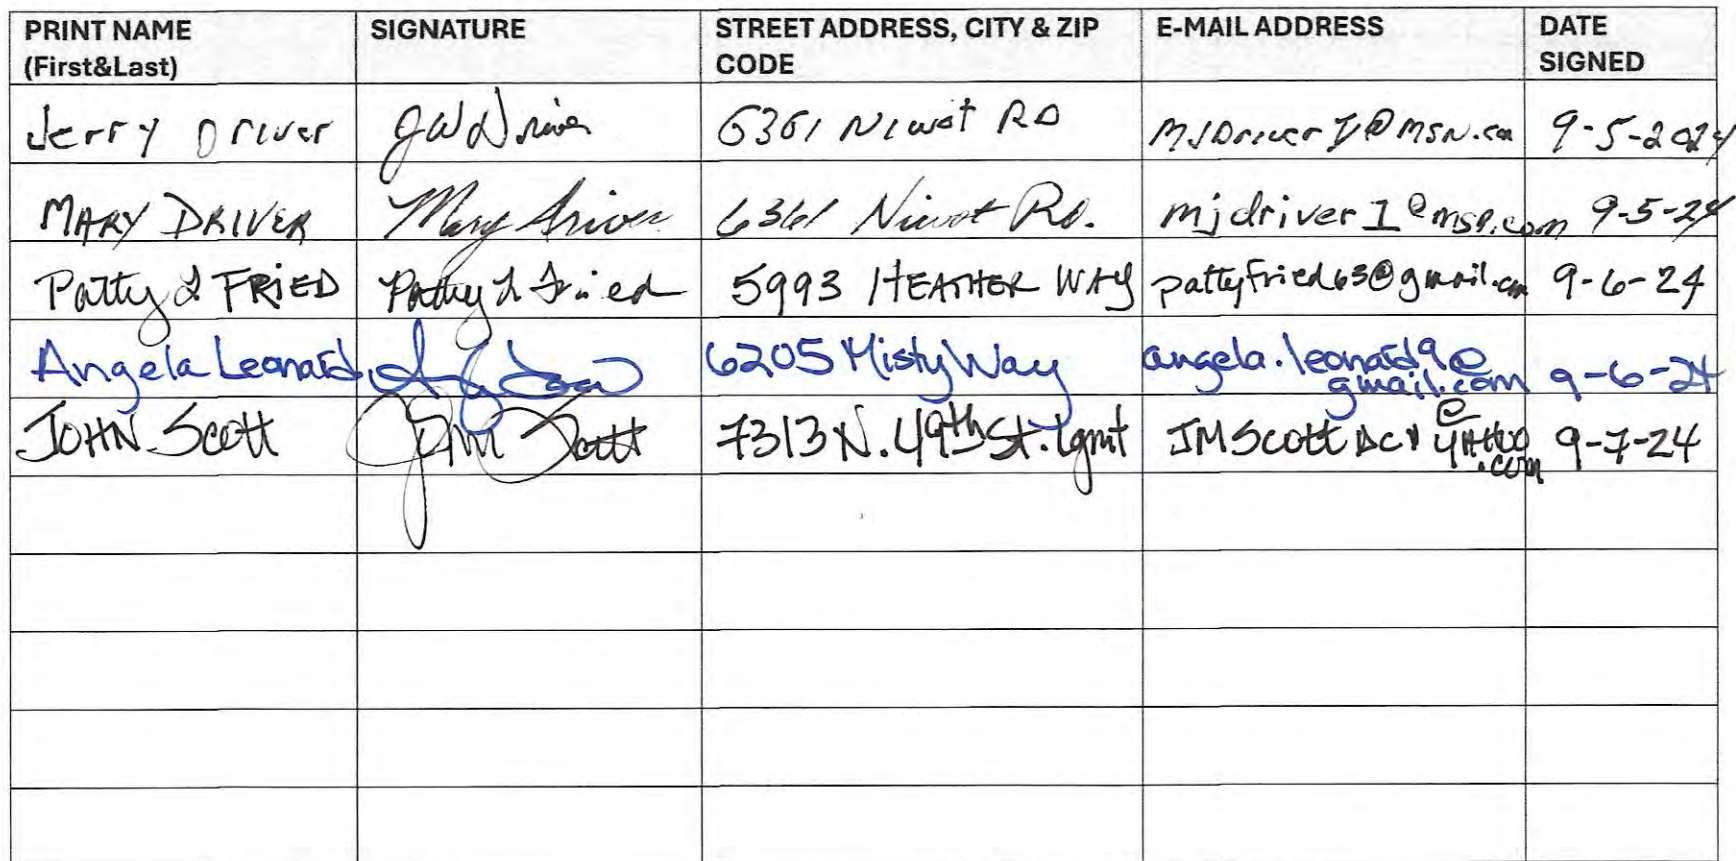 PRINT NAME (First&Last) SIGNATURE STREET ADDRESS, CITY & ZIP CODE E-MAIL ADDRESS DATE SIGNED
Jerry Driver JW Driver 6361 Niwot RD MJDriver1@msn.com 9-5-2024
MARY DRIVER Mary Driver 6361 Niwot Rd. mjdriver1@msn.com 9-5-24
Patty L FRIED Patty L Fried 5993 HEATHER WAY pattyfried63@gmail.com 9-6-24
Angela Leonard 6205 Misty Way angela.leonard9@gmail.com 9-6-24
JOHN Scott John Scott 7313 N. 49th St. Lgmt JMScott DCV@YAHOO.com 9-7-24